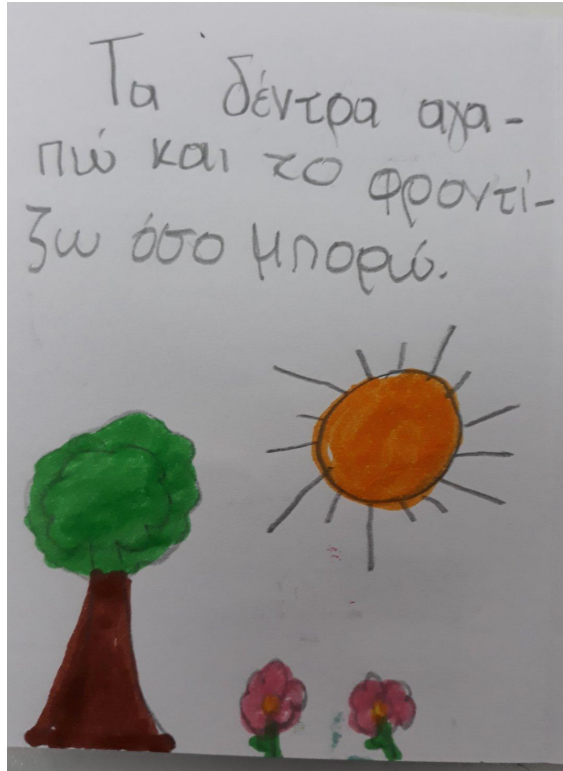 Τα δέντρα αγα-
πώ και το φροντί-
ζω όσο μπορώ.